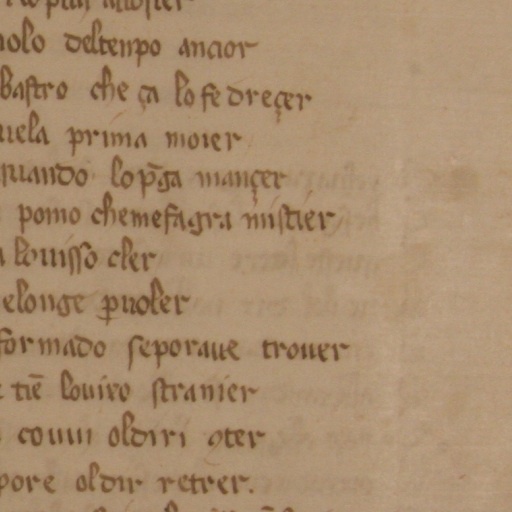 deltenpo ancior
bastro che ça lo fe dreçer
uela prima moier
quando lo p̄ga mançer
pomo chemefagra mistier
louisso cler
elonge ꝑuoler
formado seporaue trouer
tiē louiro stranier
couin oldiri ꝯter
pore oldir retrer.